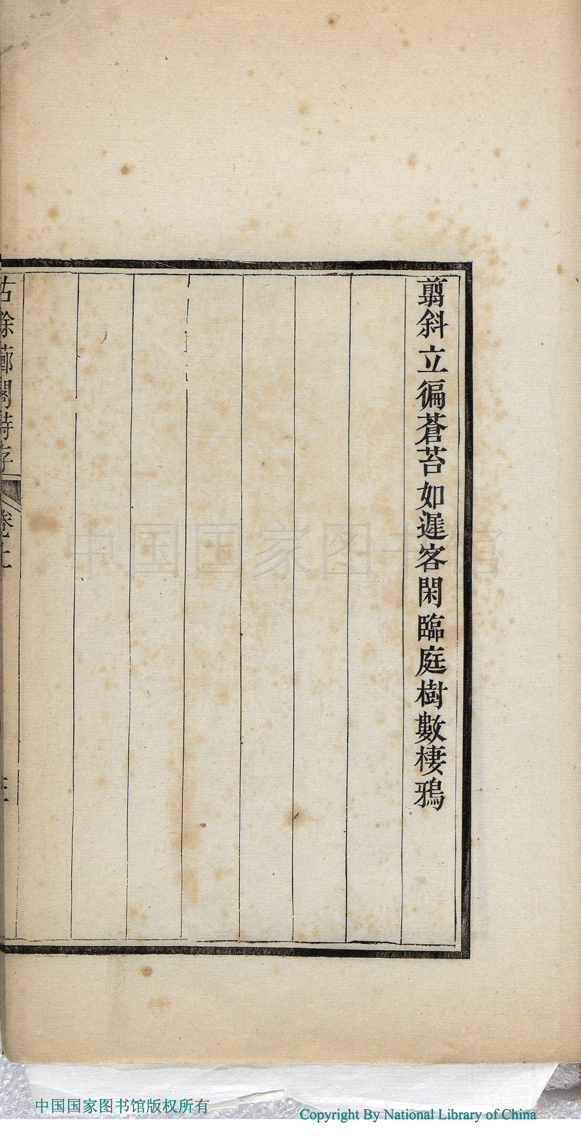 翦斜立徧蒼苔如遲客閑臨庭樹數棲鴉
卷上
中国国家图书馆
中国国家图书馆版权所有
Copyright By National Library of China